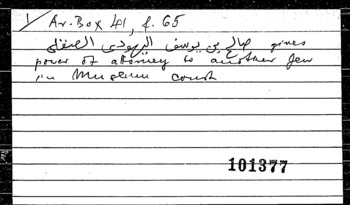 ✓ Ar. Box 41, f. 65
صالح بن يوسف اليهودى الصقلى gives
power of attorney to another Jew
in Muslim court
101377